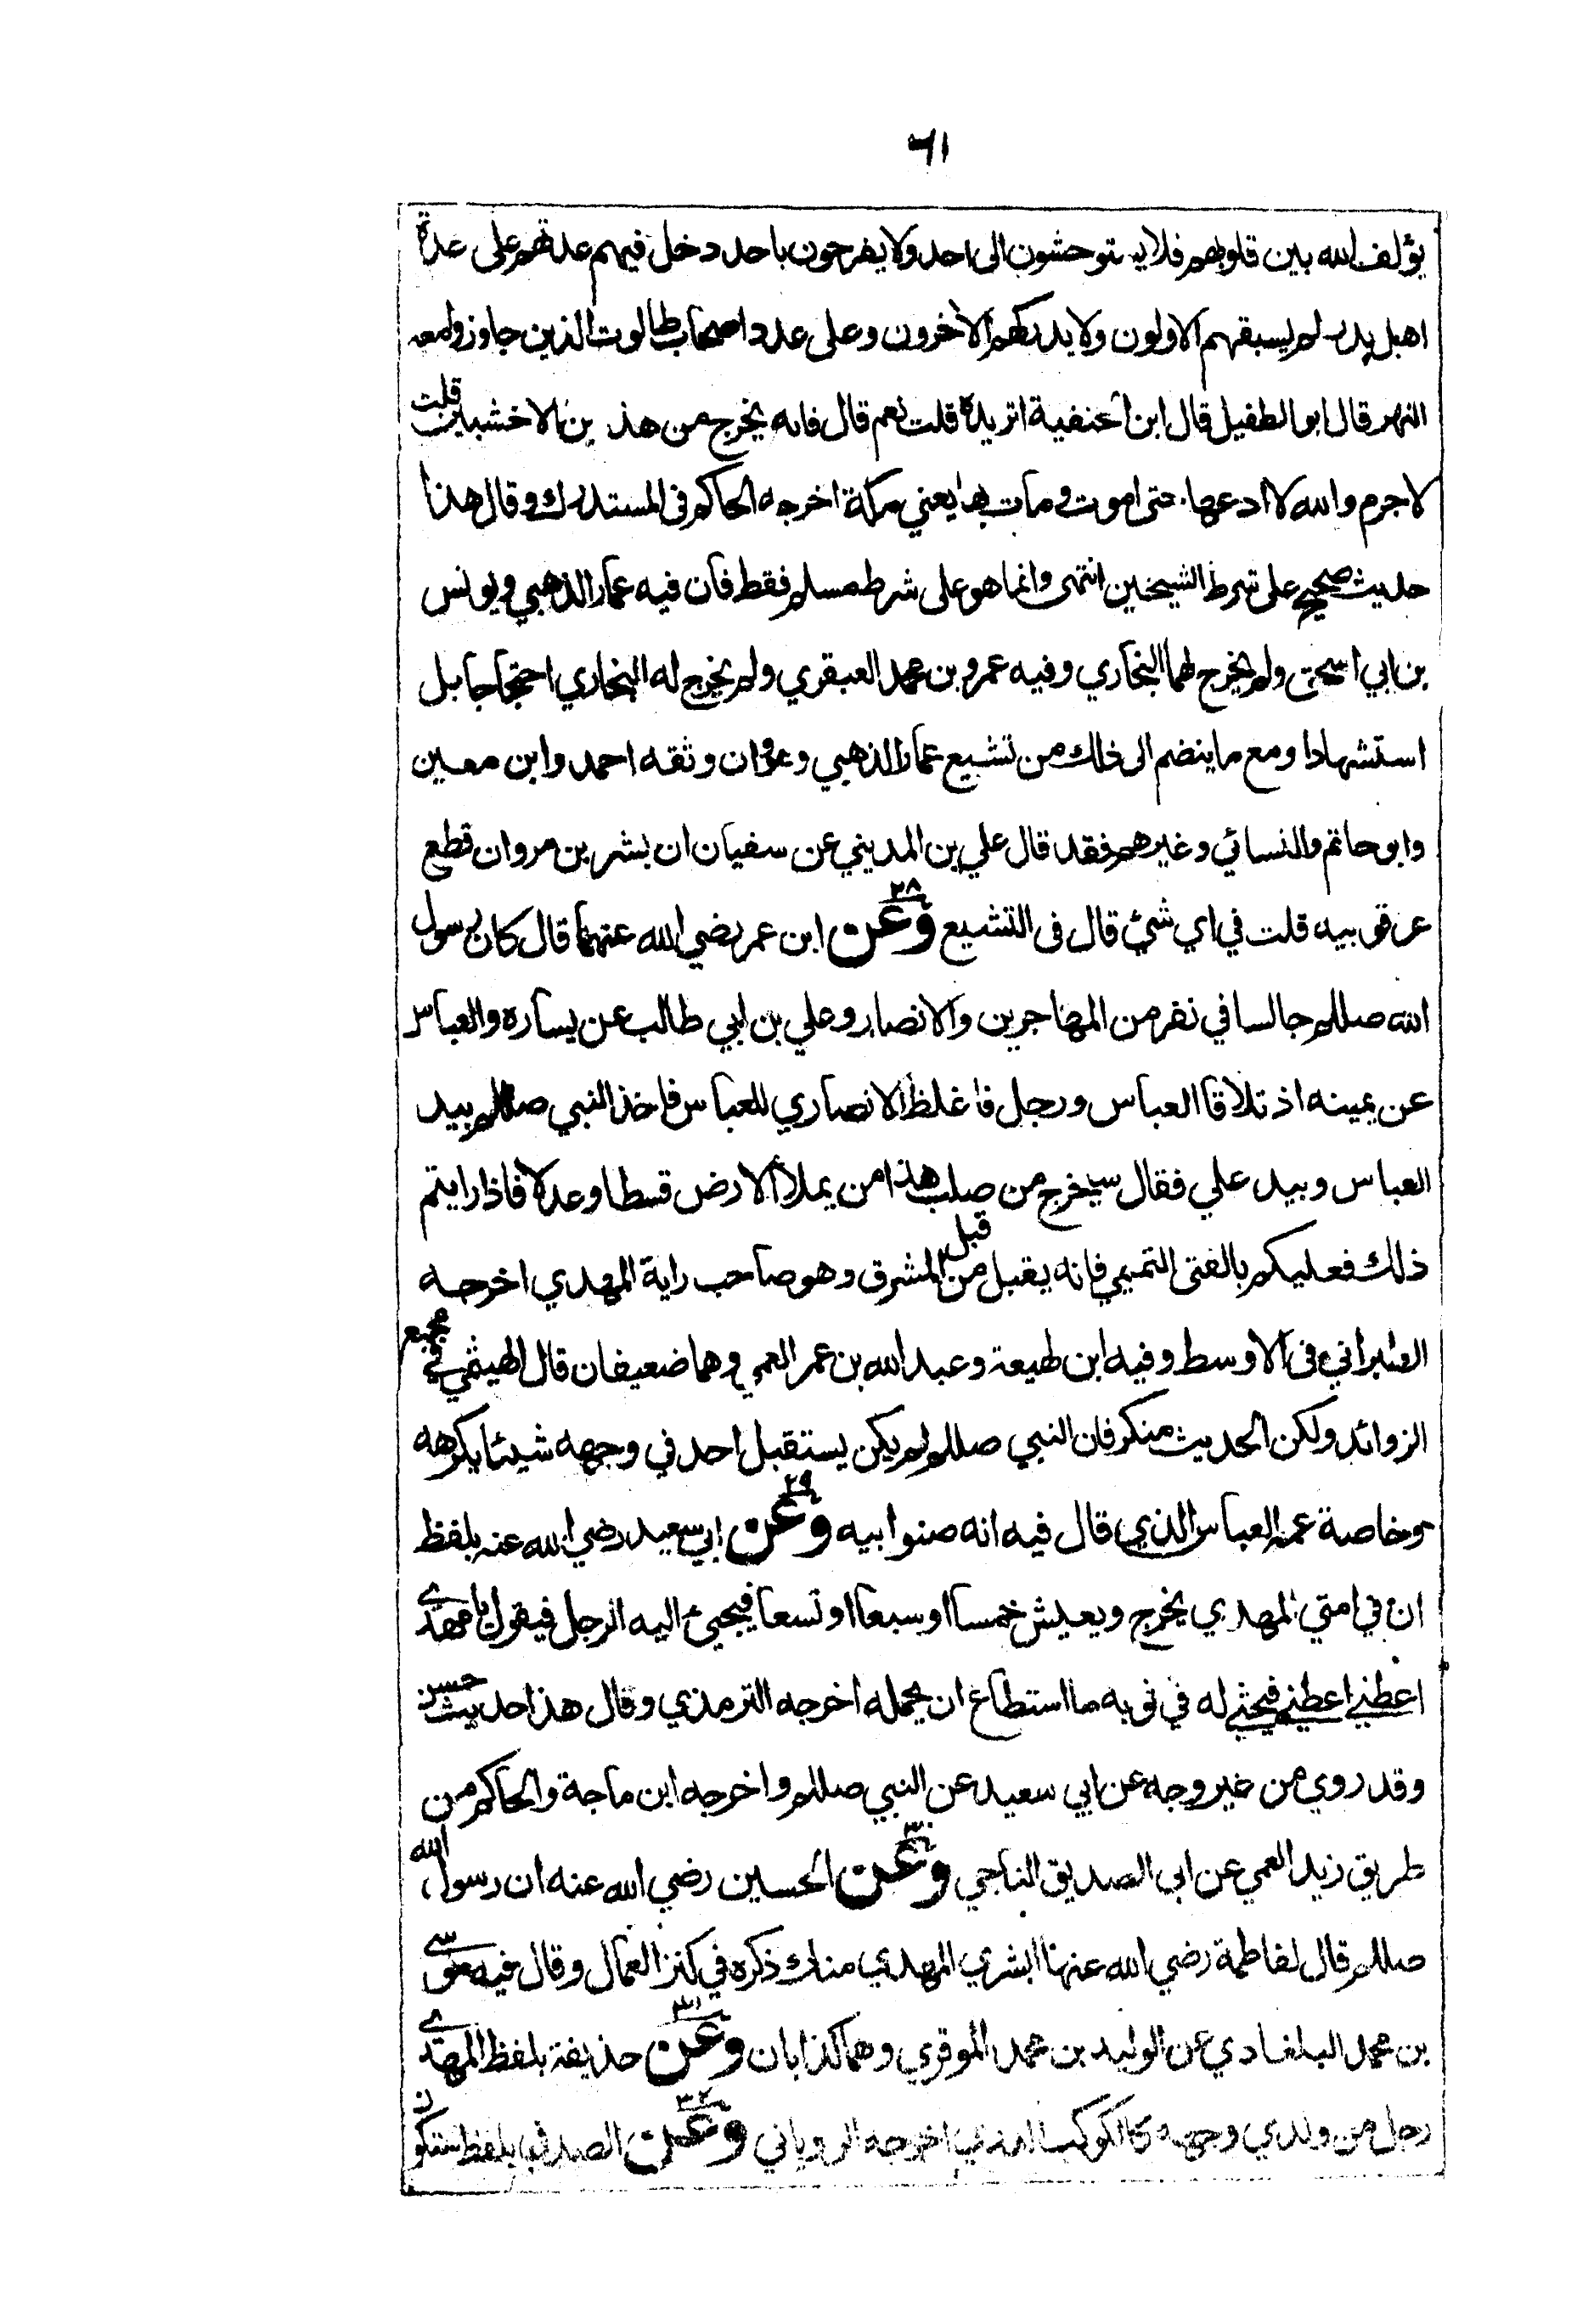 ٦١
يؤلف الله بين قلوبهم فلا يستوحشون الى احد ولا يفرحون باحد دخل فيهم عدتهم على عدة
اهل بدر لم يسبقهم الاولون ولا يدركهم الآخرون وعلى عدد اصحاب طالوت الذين جاوزوا معه
النهر قال ابو الطفيل قال ابن الحنفية اتريده قلت نعم قال فانه يخرج من هذين الاخشبين قلت
لا جرم والله لا ادعها حتى اموت ومات بها يعني مكة اخرجه الحاكم فى المستدرك وقال هذا
حديث صحيح على شرط الشيخين انتهى وانما هو على شرط مسلم فقط فان فيه عمار الذهبي ويونس
بن ابي اسحق ولم يخرج لهما البخاري وفيه عمرو بن محمد العبقري ولم يخرج له البخاري احتجاجا بل
استشهادا ومع ما ينضم الى ذلك من تشيع عمار الذهبي وهو وان وثقه احمد وابن معين
وابو حاتم والنسائي وغيرهم فقد قال علي بن المديني عن سفيان ان بشر بن مروان قطع
عرقوبيه قلت في اي شيئ قال فى التشيع ٢٨ وعن ابن عمر رضي الله عنهما قال كان رسول
الله صللم جالسا في نفر من المهاجرين والانصار وعلي بن ابي طالب عن يساره والعباس
عن يمينه اذ تلاقا العباس ورجل فاغلظ الانصاري للعباس فاخذ النبي صللم بيد
العباس وبيد علي فقال سيخرج من صلب هذا من يملأ الارض قسطا وعدلا فاذا رايتم
ذلك فعليكم بالفتى التميمي فانه يقبل من قبل المشرق وهو صاحب راية المهدي اخرجه
الطبراني فى الاوسط وفيه ابن لهيعة وعبد الله بن عمر العمي وهما ضعيفان قال الهيثمي في مجمع
الزوائد ولكن الحديث منكر فان النبي صللم لم يكن يستقبل احد في وجهه شيئا يكرهه
وخاصة عمه العباس الذي قال فيه انه صنو ابيه ٢٩ وعن ابي سعيد رضي الله عنه بلفظ
ان في امتي المهدي يخرج ويعيش خمسا او سبعا او تسعا فيجيئ اليه الرجل فيقول يا مهدي
اعطني اعطني فيحثي له في ثوبه ما استطاع ان يحمله اخرجه الترمذي وقال هذا حديث حسن
وقد روي من غير وجه عن ابي سعيد عن النبي صللم واخرجه ابن ماجة والحاكم من
طريق زيد العمي عن ابي الصديق الناجي ٣٠ وعن الحسين رضي الله عنه ان رسول الله
صللم قال لفاطمة رضي الله عنها ابشري المهدي منك ذكره في كنز العمال وقال فيه موسى
بن محمد البلغادي عن الوليد بن محمد الموقري وهما كذابان ٣١ وعن حذيفة بلفظ المهدي
رجل من ولدي وجهه كالكوكب الدري اخرجه الروياني ٣٢ وعن الصدفي بلفظ ستكون